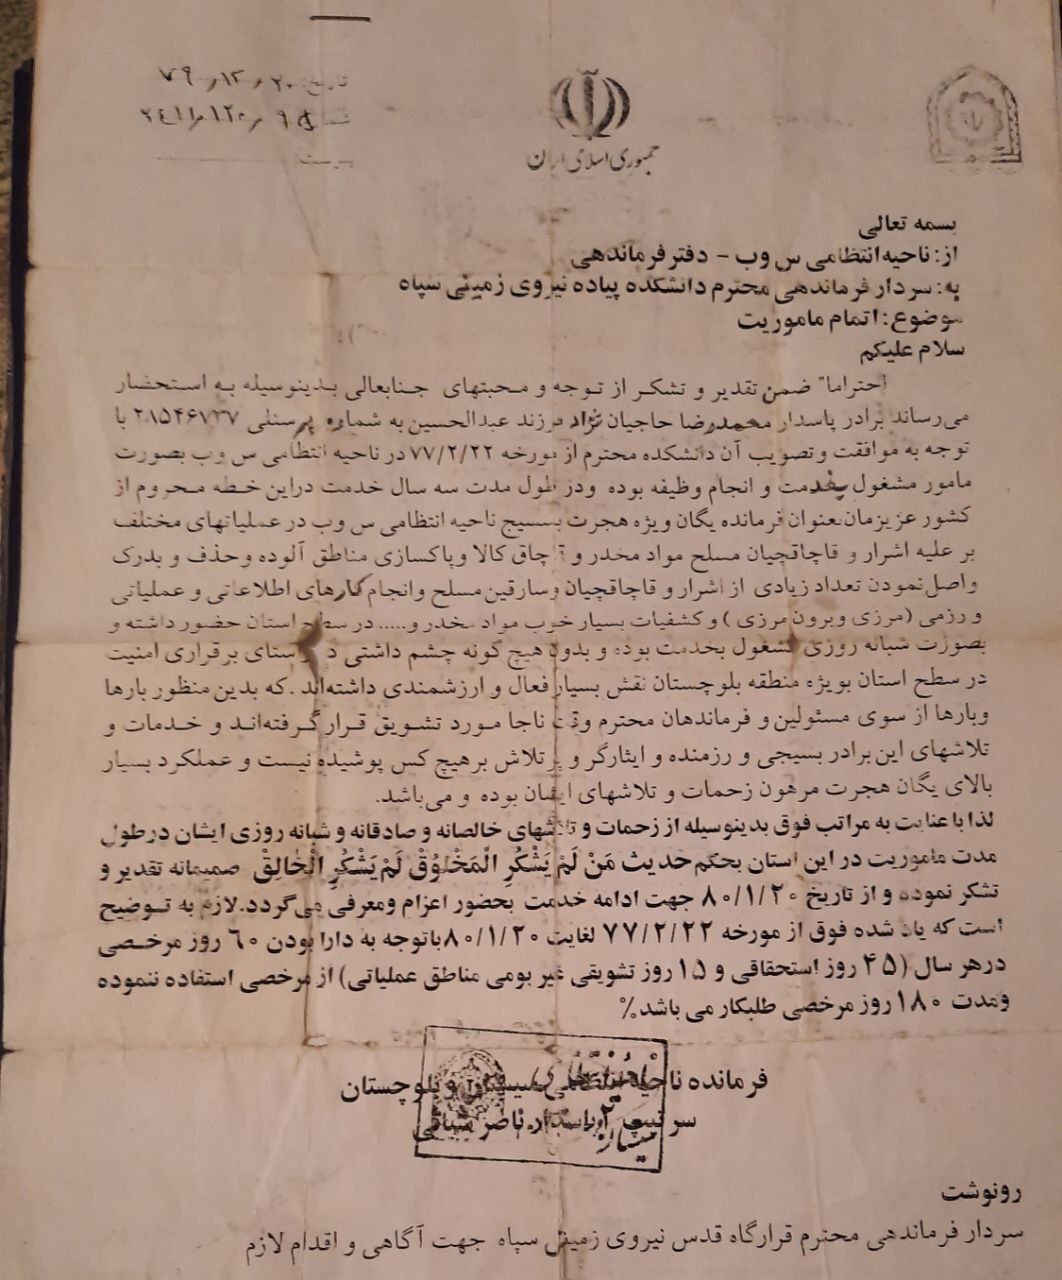 تاریخ: ۷۹٫۱۲٫۲۰
جمهوری اسلامی ایران
بسمه تعالی
از: ناحیه انتظامی س وب - دفتر فرماندهی
به: سردار فرماندهی محترم دانشکده پیاده نیروی زمینی سپاه
موضوع: اتمام ماموریت
سلام علیکم
احتراما" ضمن تقدیر و تشکر از توجه و محبتهای جنابعالی بدینوسیله به استحضار
می‌رساند برادر پاسدار محمدرضا حاجیان نژاد فرزند عبدالحسین به شماره پرسنلی ۲۸۵۴۶۷۳۷ با
توجه به موافقت و تصویب آن دانشکده محترم از مورخه ۷۷/۲/۲۲ در ناحیه انتظامی س وب بصورت
مامور مشغول بخدمت و انجام وظیفه بوده ودر طول مدت سه سال خدمت دراین خطه محروم از
کشور عزیزمان بعنوان فرمانده یگان ویژه هجرت بسیج ناحیه انتظامی س وب در عملیاتهای مختلف
بر علیه اشرار و قاچاقچیان مسلح مواد مخدر و قاچاق کالا وپاکسازی مناطق آلوده وحذف و بدرک
واصل نمودن تعداد زیادی از اشرار و قاچاقچیان وسارقین مسلح وانجام کارهای اطلاعاتی و عملیاتی
و رزمی (مرزی وبرون مرزی) وکشفیات بسیار خوب مواد مخدر و..... در سطح استان حضور داشته و
بصورت شبانه روزی مشغول بخدمت بوده و بدون هیچ گونه چشم داشتی در راستای برقراری امنیت
در سطح استان بویژه منطقه بلوچستان نقش بسیار فعال و ارزشمندی داشته‌اند .که بدین منظور بارها
وبارها از سوی مسئولین و فرماندهان محترم وقت ناجا مورد تشویق قرار گرفته‌اند و خدمات و
تلاشهای این برادر بسیجی و رزمنده و ایثارگر و پرتلاش برهیچ کس پوشیده نیست و عملکرد بسیار
بالای یگان هجرت مرهون زحمات و تلاشهای ایشان بوده و می‌باشد.
لذا با عنایت به مراتب فوق بدینوسیله از زحمات و تلاشهای خالصانه و صادقانه و شبانه روزی ایشان درطول
مدت ماموریت در این استان بحکم حدیث مَنْ لَمْ یَشْکُرِ الْمَخْلُوقْ لَمْ یَشْکُرِ الْخالِقْ صمیمانه تقدیر و
تشکر نموده و از تاریخ ۸۰/۱/۲۰ جهت ادامه خدمت بحضور اعزام ومعرفی می‌گردد.لازم به توضیح
است که یاد شده فوق از مورخه ۷۷/۲/۲۲ لغایت ۸۰/۱/۲۰ باتوجه به دارا بودن ۶۰ روز مرخصی
درهر سال (۴۵ روز استحقاقی و ۱۵ روز تشویقی غیر بومی مناطق عملیاتی) از مرخصی استفاده ننموده
ومدت ۱۸۰ روز مرخصی طلبکار می باشد٪
فرمانده ناحیه انتظامی سیستان و بلوچستان
سرتیپ ۲ پاسدار ناصر
رونوشت
سردار فرماندهی محترم قرارگاه قدس نیروی زمینی سپاه جهت آگاهی و اقدام لازم